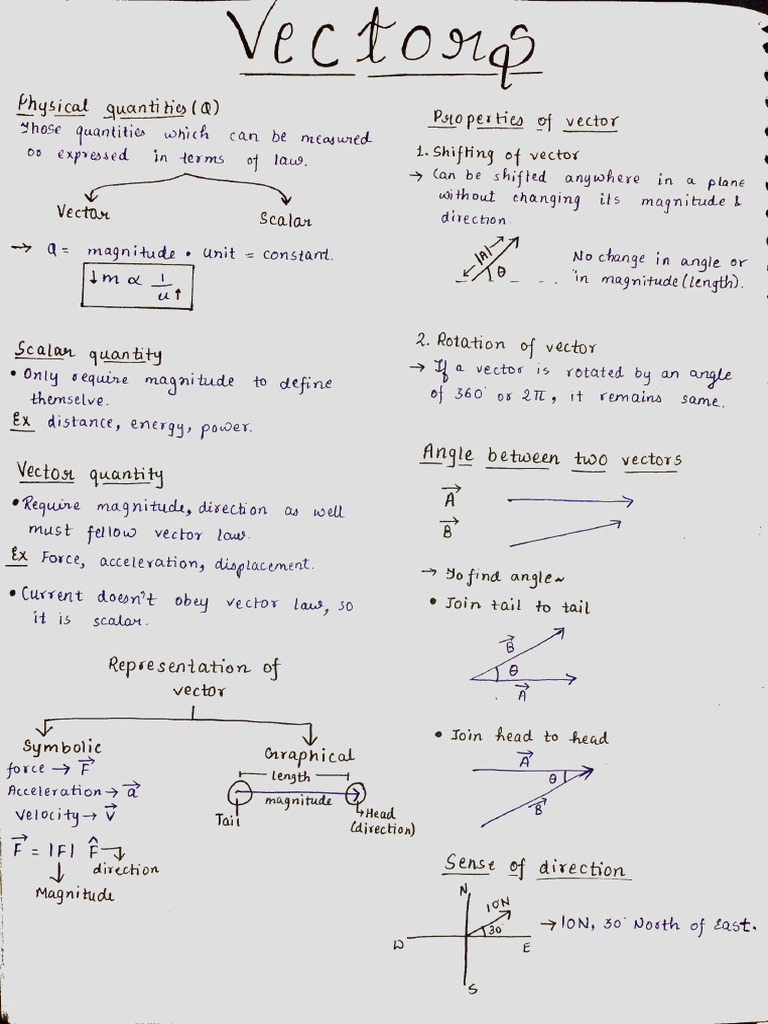 Vectors
Physical quantities (Q)
Those quantities which can be measured
or expressed in terms of law.
Vector
Scalar
→ Q = magnitude • unit = constant.
↓m ∝ 1/u↑
Scalar quantity
• Only require magnitude to define
themselve.
Ex distance, energy, power.
Vector quantity
• Require magnitude, direction as well
must fellow vector law.
Ex Force, acceleration, displacement.
• Current doesn't obey vector law, so
it is scalar.
Representation of
vector
Symbolic
force → F⃗
Acceleration → a⃗
Velocity → v⃗
F⃗ = |F| F̂ → direction
Magnitude
Graphical
length
magnitude
Tail
Head
(direction)
Properties of vector
1. Shifting of vector
→ Can be shifted anywhere in a plane
without changing its magnitude &
direction.
|A|
θ
No change in angle or
in magnitude (length).
2. Rotation of vector
→ If a vector is rotated by an angle
of 360° or 2π, it remains same.
Angle between two vectors
A⃗
B⃗
→ To find angle~
• Join tail to tail
B⃗
θ
A⃗
• Join head to head
A⃗
θ
B⃗
Sense of direction
N
10N
30°
W
E
S
→ 10N, 30° North of East.